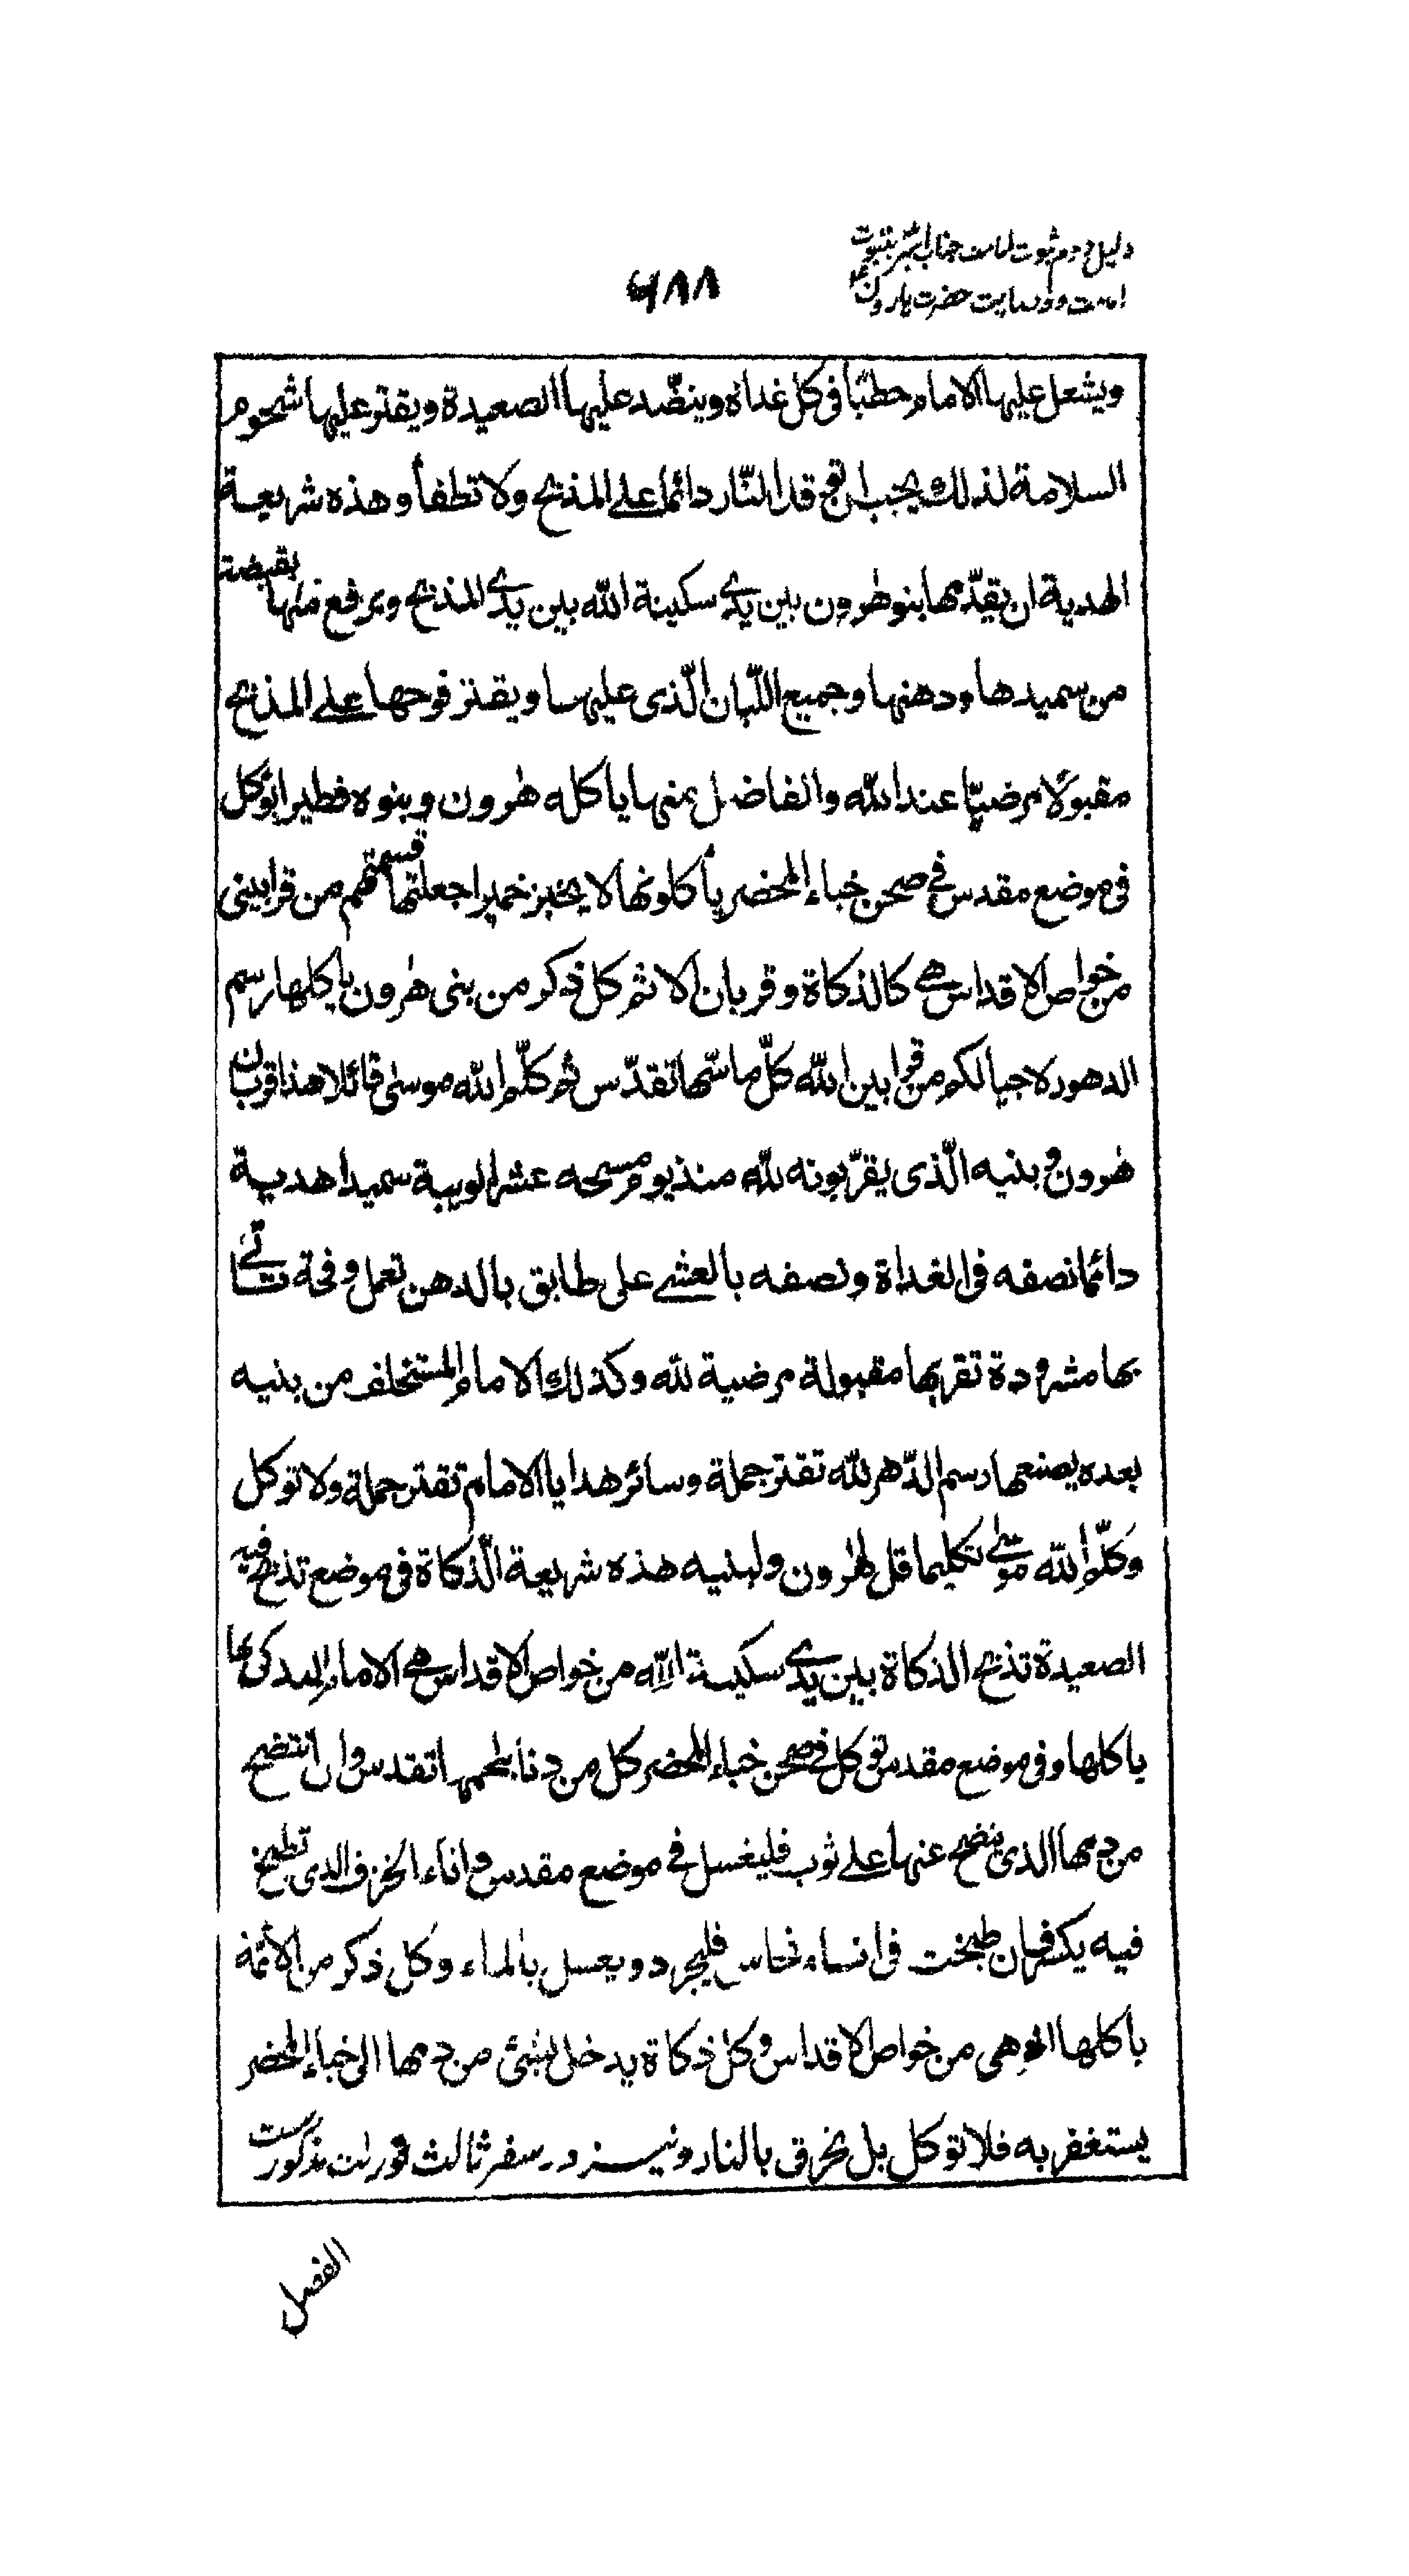 دلیل دوم ثبوت امامت جناب امیر بثبوت
امامت ووصایت حضرت هارون
۶۸۸
ويشعل عليها الامام حطبًا فى كل غداة وينضّد عليها الصعيدة ويقتر عليها شحوم
السلامة لذلك يجب ان توقد النّار دائما على المذبح ولا تطفأ وهذه شريعة
الهدية ان يقدّمها بنو هٰرون بين يدى سكينة الله بين يدى المذبح ويرفع منها بقبضته
من سميدها ودهنها وجميع اللّبان الّذى عليها ويقتر فوحها على المذبح
مقبولًا مرضيّا عند الله والفاضل منها ياكله هٰرون وبنوه فطيرا يوكل
فى موضع مقدس فى صحن خباء المحضر يأكلونها لا يخبز خميرا جعلتها قسمتهم من قرابينى
من خواص الاقداس هى كالذكاة وقربان الاثم كل ذكر من بنى هٰرون ياكلها رسم
الدهور لاجيالكم من قرابين الله كلّ ماسّها تقدّس ثم كلّم الله موسىٰ قائلا هذا قربان
هٰرون وبنيه الّذى يقرّبونه لله منذ يوم مسحه عشر الويبة سميدا هدية
دائما نصفه فى الغداة ونصفه بالعشى على طابق بالدهن تعمل وفحة تأتى
بها مشرودة تقربها مقبولة مرضية لله وكذلك الامام المستخلف من بنيه
بعده يصنعها رسم الدّهر لله تقتر جملة وسائر هدايا الامام تقتر جملة ولا توكل
وكلّم الله موسىٰ تكليما قل لهٰرون ولبنيه هذه شريعة الذكاة فى موضع تذبح فيه
الصعيدة تذبح الذكاة بين يدى سكينة الله من خواص الاقداس هى الامام المذكى بها
ياكلها وفى موضع مقدس توكل فى صحن خباء المحضر كل من دنا بلحمها تقدس وان انتضح
من دمها الذى ينضح عنها على ثوب فليغسل فى موضع مقدس واناء الخزف الذى تطبخ
فيه يكسر فان طبخت فى اناء نحاس فليجرد ويغسل بالماء وكل ذكر من الأئمة
ياكلها اذ هى من خواص الاقداس وكل ذكاة يدخل بشئ من دمها الى خباء المحضر
يستغفر به فلا توكل بل تحرق بالنار ونیز در سفر ثالث توراة مذکورست
الفصل